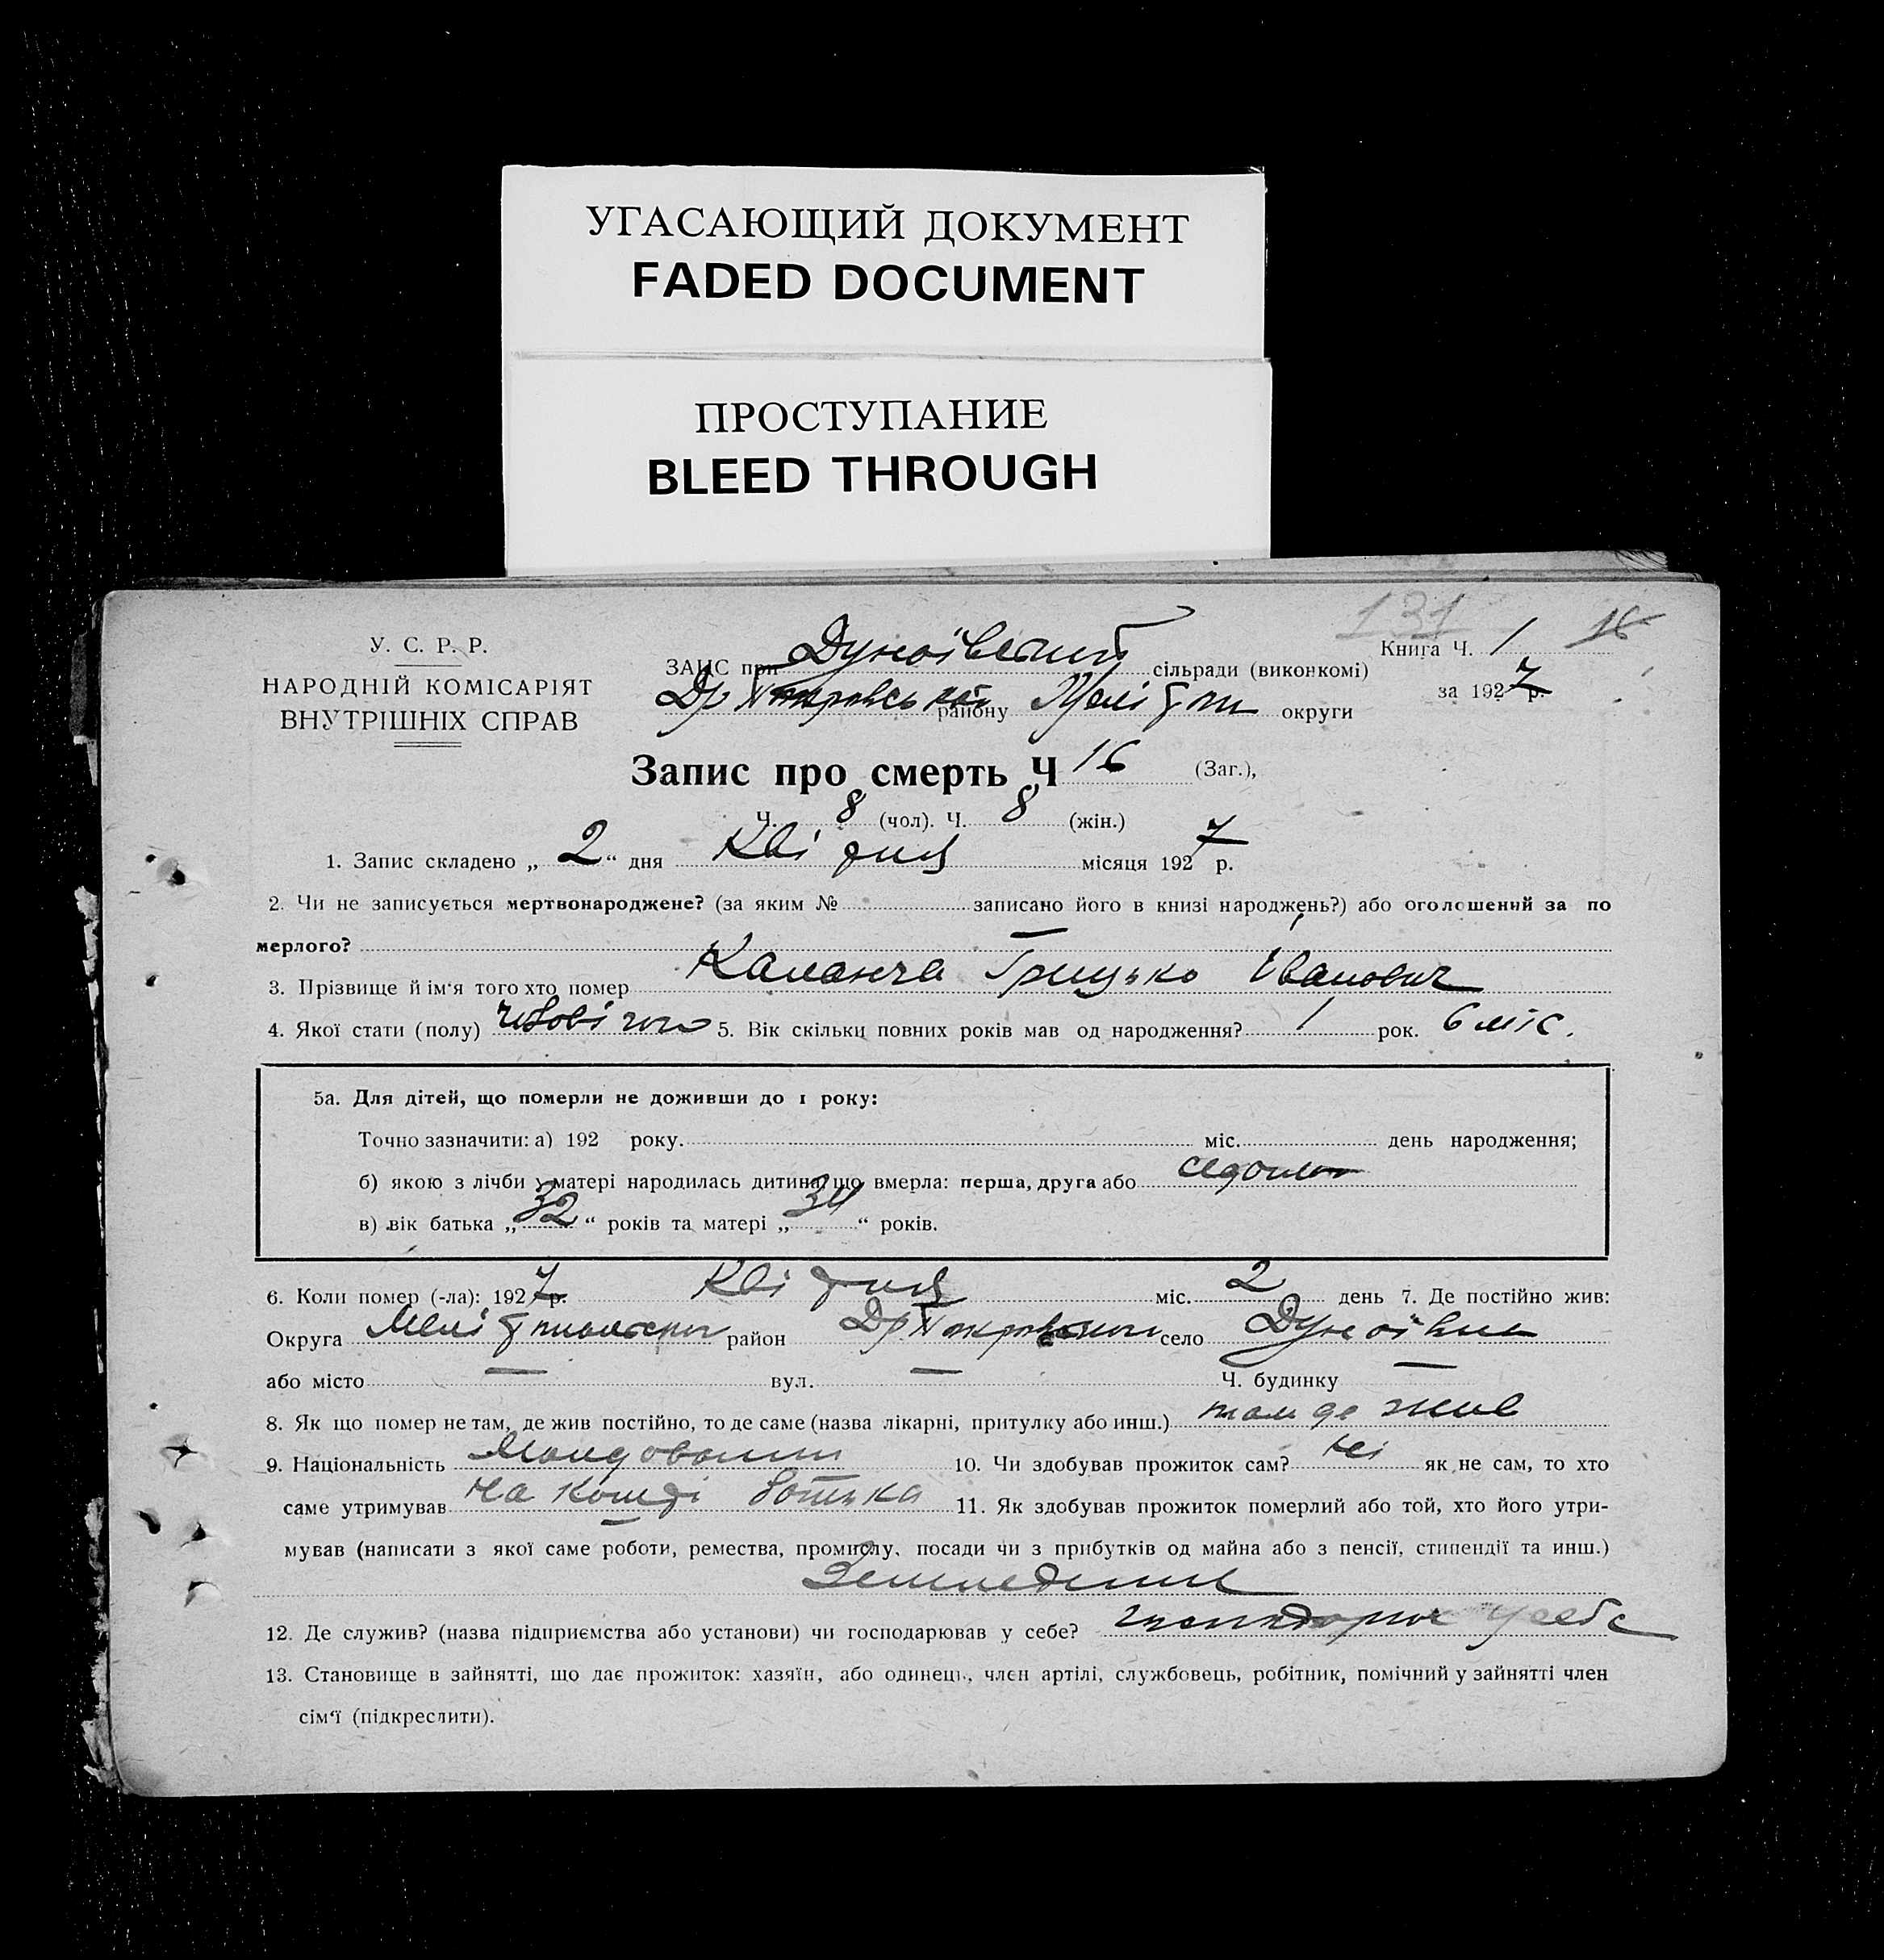 УГАСАЮЩИЙ ДОКУМЕНТ
FADED DOCUMENT
ПРОСТУПАНИЕ
BLEED THROUGH
131
У. С. Р. Р.
НАРОДНІЙ КОМІСАРІЯТ
ВНУТРІШНІХ СПРАВ
Книга Ч. 1 16
ЗАИС при Дунаївській сільради (виконкомі)
за 1927 р.
району Меліт округи
Запис про смерть Ч 16 (Заг.),
Ч. 8 (чол). Ч. 8 (жін.)
1. Запис складено „ 2 “ дня Квітня місяця 1927 р.
2. Чи не записується мертвонароджене? (за яким № записано його в книзі народжень?) або оголошений за по
мерлого? —
3. Прізвище й ім'я того хто помер Каланча Грицько Іванович
4. Якої стати (полу) чоловічого 5. Вік скільки повних років мав од народження? 1 рок. 6 міс.
5а. Для дітей, що померли не доживши до 1 року:
Точно зазначити: а) 192 року. міс. день народження;
б) якою з лічби у матері народилась дитина, що вмерла: перша, друга або
в) вік батька „ 32 “ років та матері „ 34 “ років.
6. Коли помер (-ла): 1927 р. Квітня міс. 2 день 7. Де постійно жив:
Округа район село Дунаївка
або місто — вул. — Ч. будинку —
8. Як що помер не там, де жив постійно, то де саме (назва лікарні, притулку або инш.) там де жив
9. Національність 10. Чи здобував прожиток сам? Ні як не сам, то хто
саме утримував На кошті батька 11. Як здобував прожиток померлий або той, хто його утри-
мував (написати з якої саме роботи, ремества, промислу, посади чи з прибутків од майна або з пенсії, стипендії та инш.)
12. Де служив? (назва підприємства або установи) чи господарював у себе? у себе
13. Становище в зайнятті, що дає прожиток: хазяїн, або одинець, член артілі, службовець, робітник, помічний у зайнятті член
сім'ї (підкреслити).